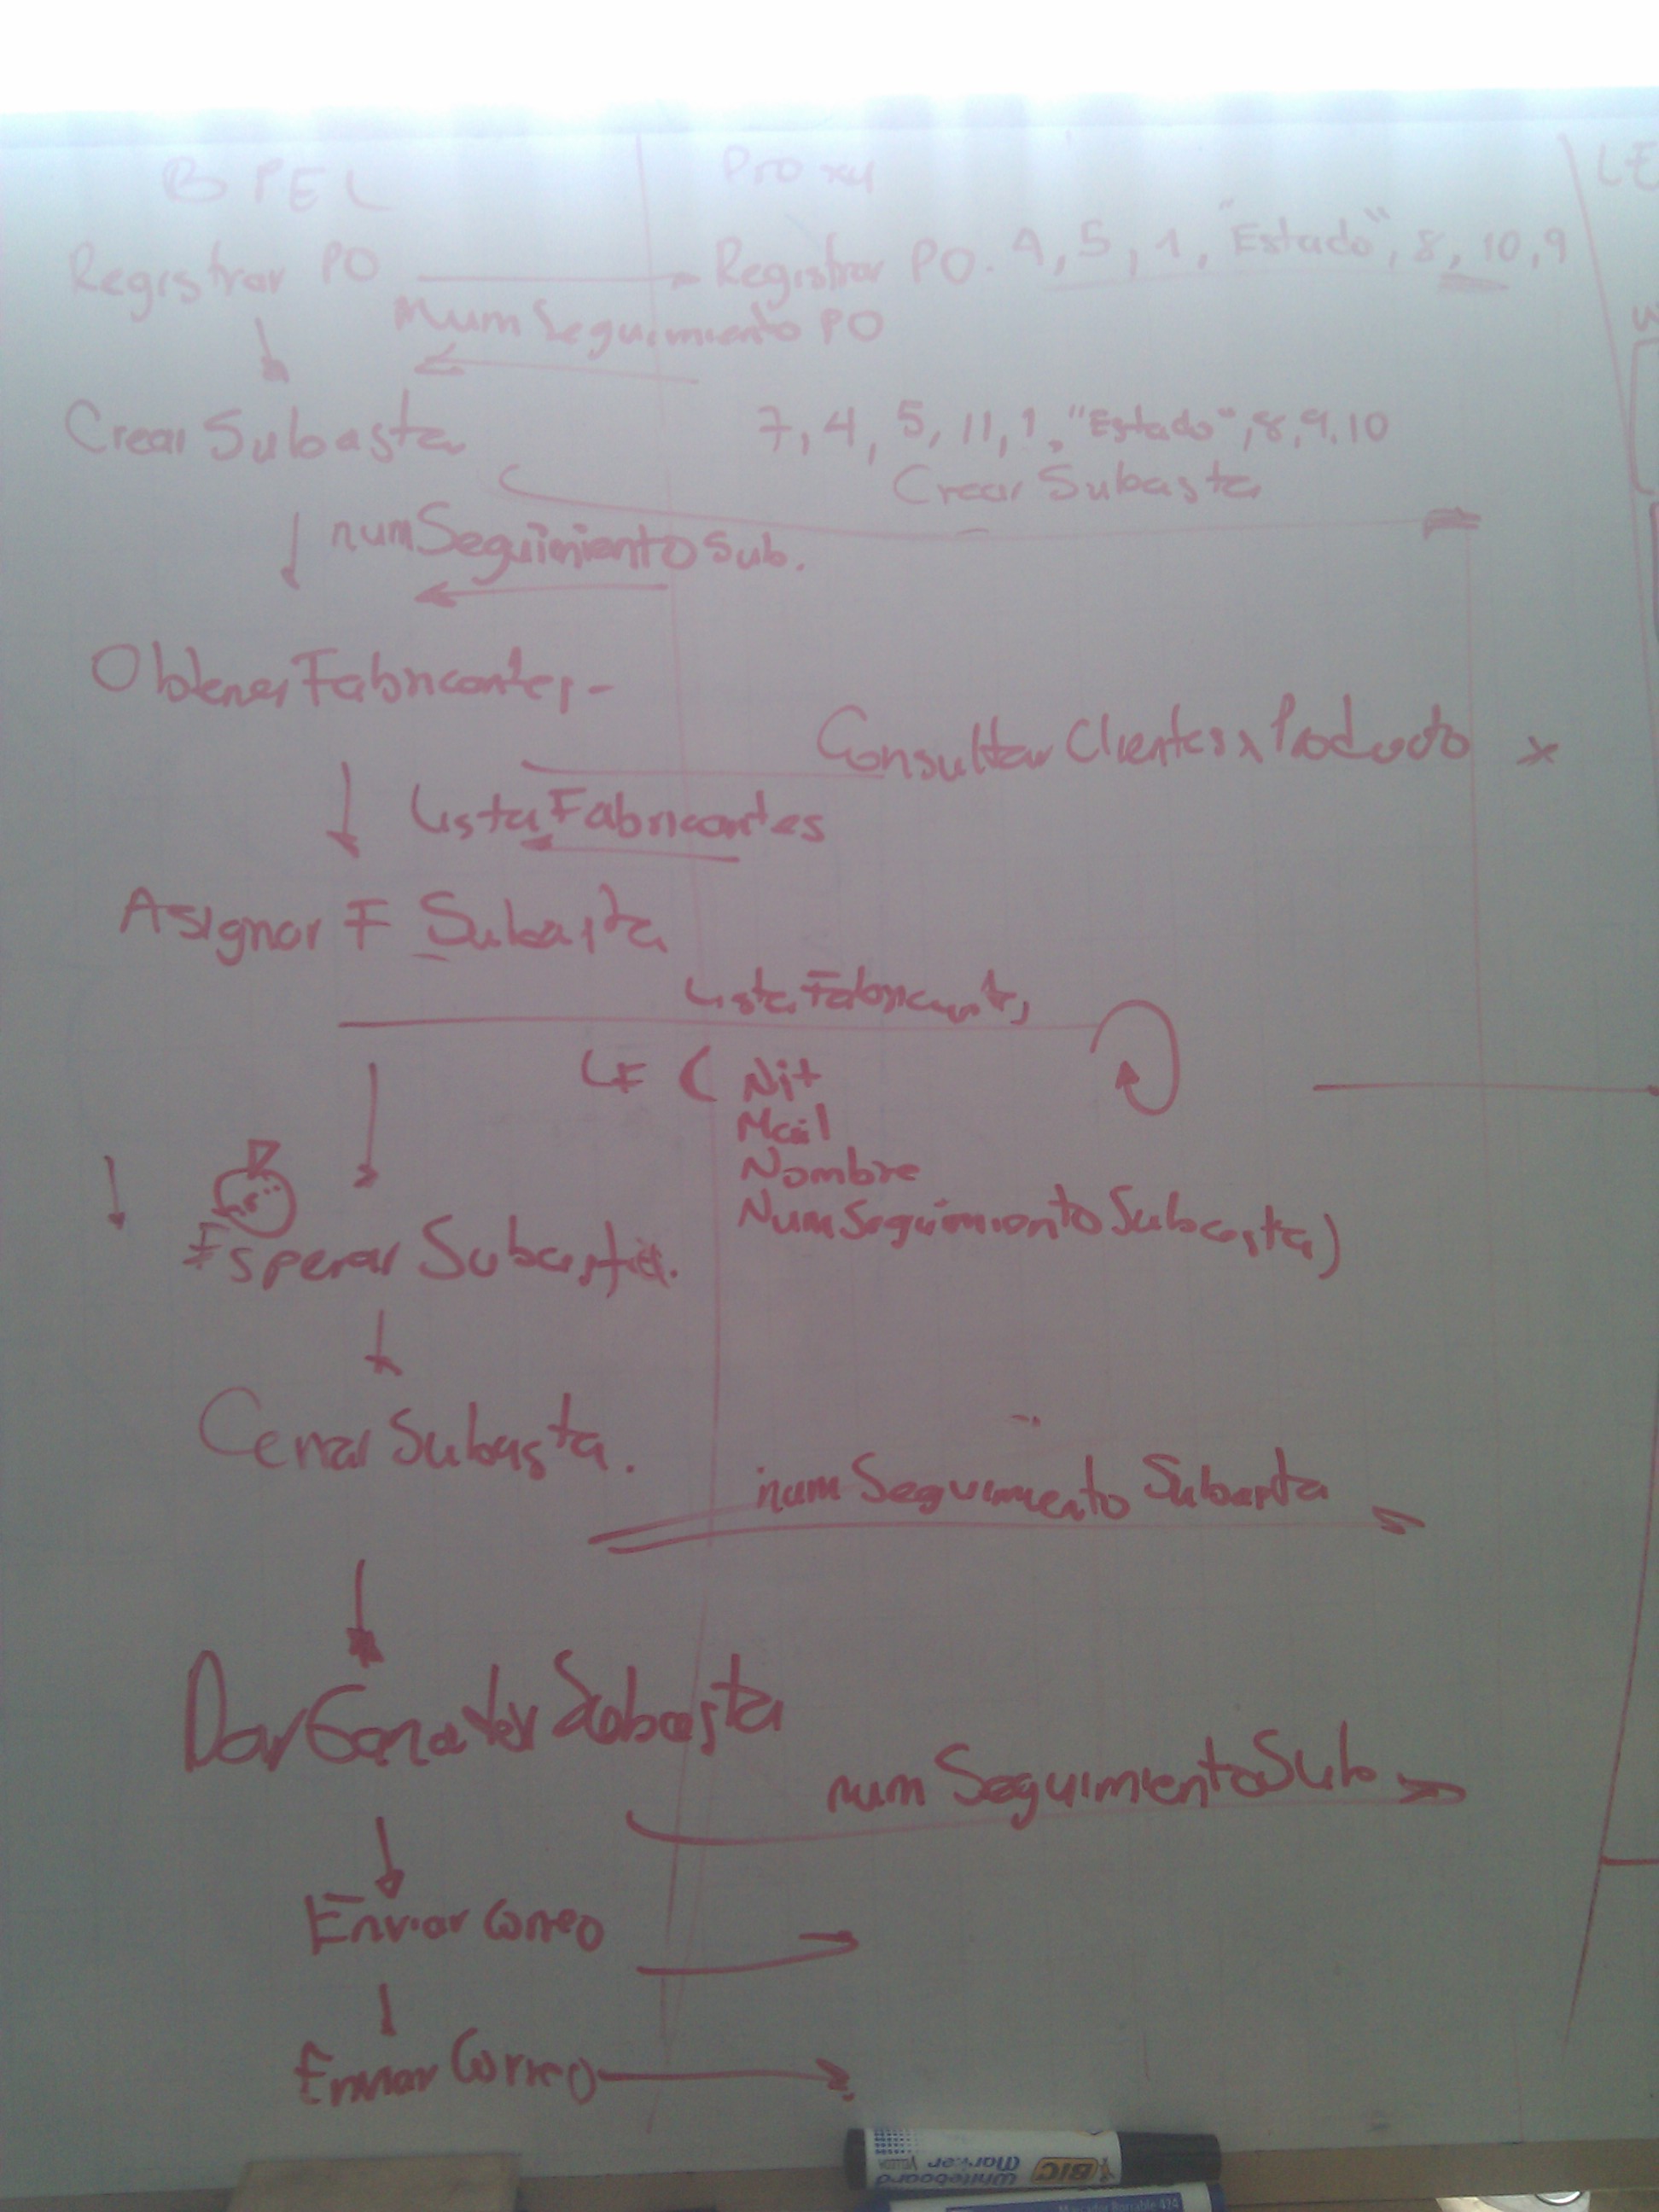 BPEL
Proxy
LE
Registrar PO
Registrar PO. 4, 5, 1, "Estado", 8, 10, 9
Num Seguimiento PO
Crear Subasta
7, 4, 5, 11, 1, "Estado", 8, 9, 10
Crear Subasta
numSeguimientoSub.
ObtenerFabricantes
Consultar Clientes x Producto x
Lista Fabricantes
Asignar F Subasta
Lista Fabricantes
LF ( Nit
Mail
Nombre
NumSeguimientoSubasta)
Esperar Subasta.
Cerrar Subasta.
num Seguimiento Subasta
DarGanadorSubasta
num SeguimientoSub
Enviar Correo
Enviar Correo
Whiteboard
Marker
BIC
Marcador Borrable 424